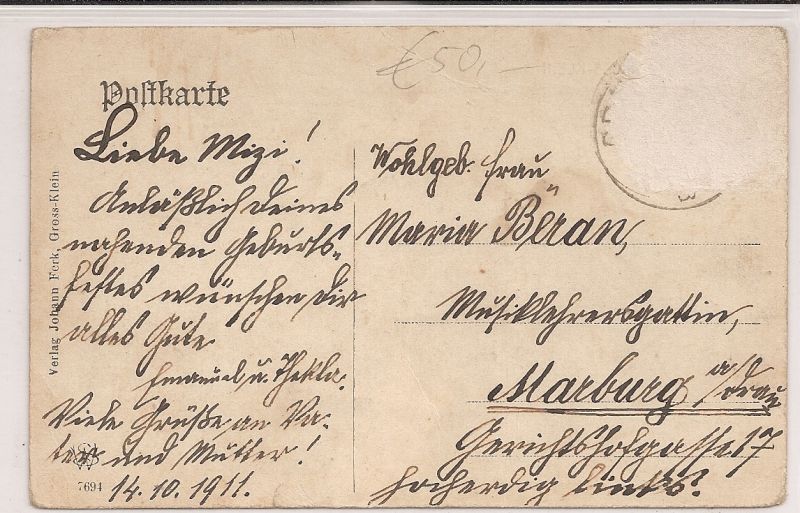 €50,-
Postkarte
Liebe Mizi!
Anläßlich Deines
nahenden Geburts-
festes wünschen Dir
alles Gute
Emanuel u. Thekla.
Viele Grüße an Va-
ter und Mutter!
14.10.1911.
Wohlgeb. Frau
Maria Beran,
Musiklehrersgattin,
Marburg a/Drau
Gerichtshofgasse 17
hocherdig links.
Verlag Johann Ferk, Gross-Klein
7694